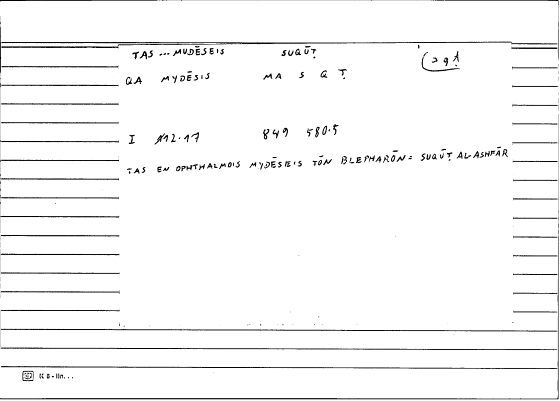 TAS ... MUDĒSEIS SUQŪṬ
QA MYDĒSIS MA S Q Ṭ
I 112.17 849 580.5
TAS EN OPHTHALMOIS MYDĒSEIS TŌN BLEPHARŌN = SUQŪṬ AL-ASHFĀR